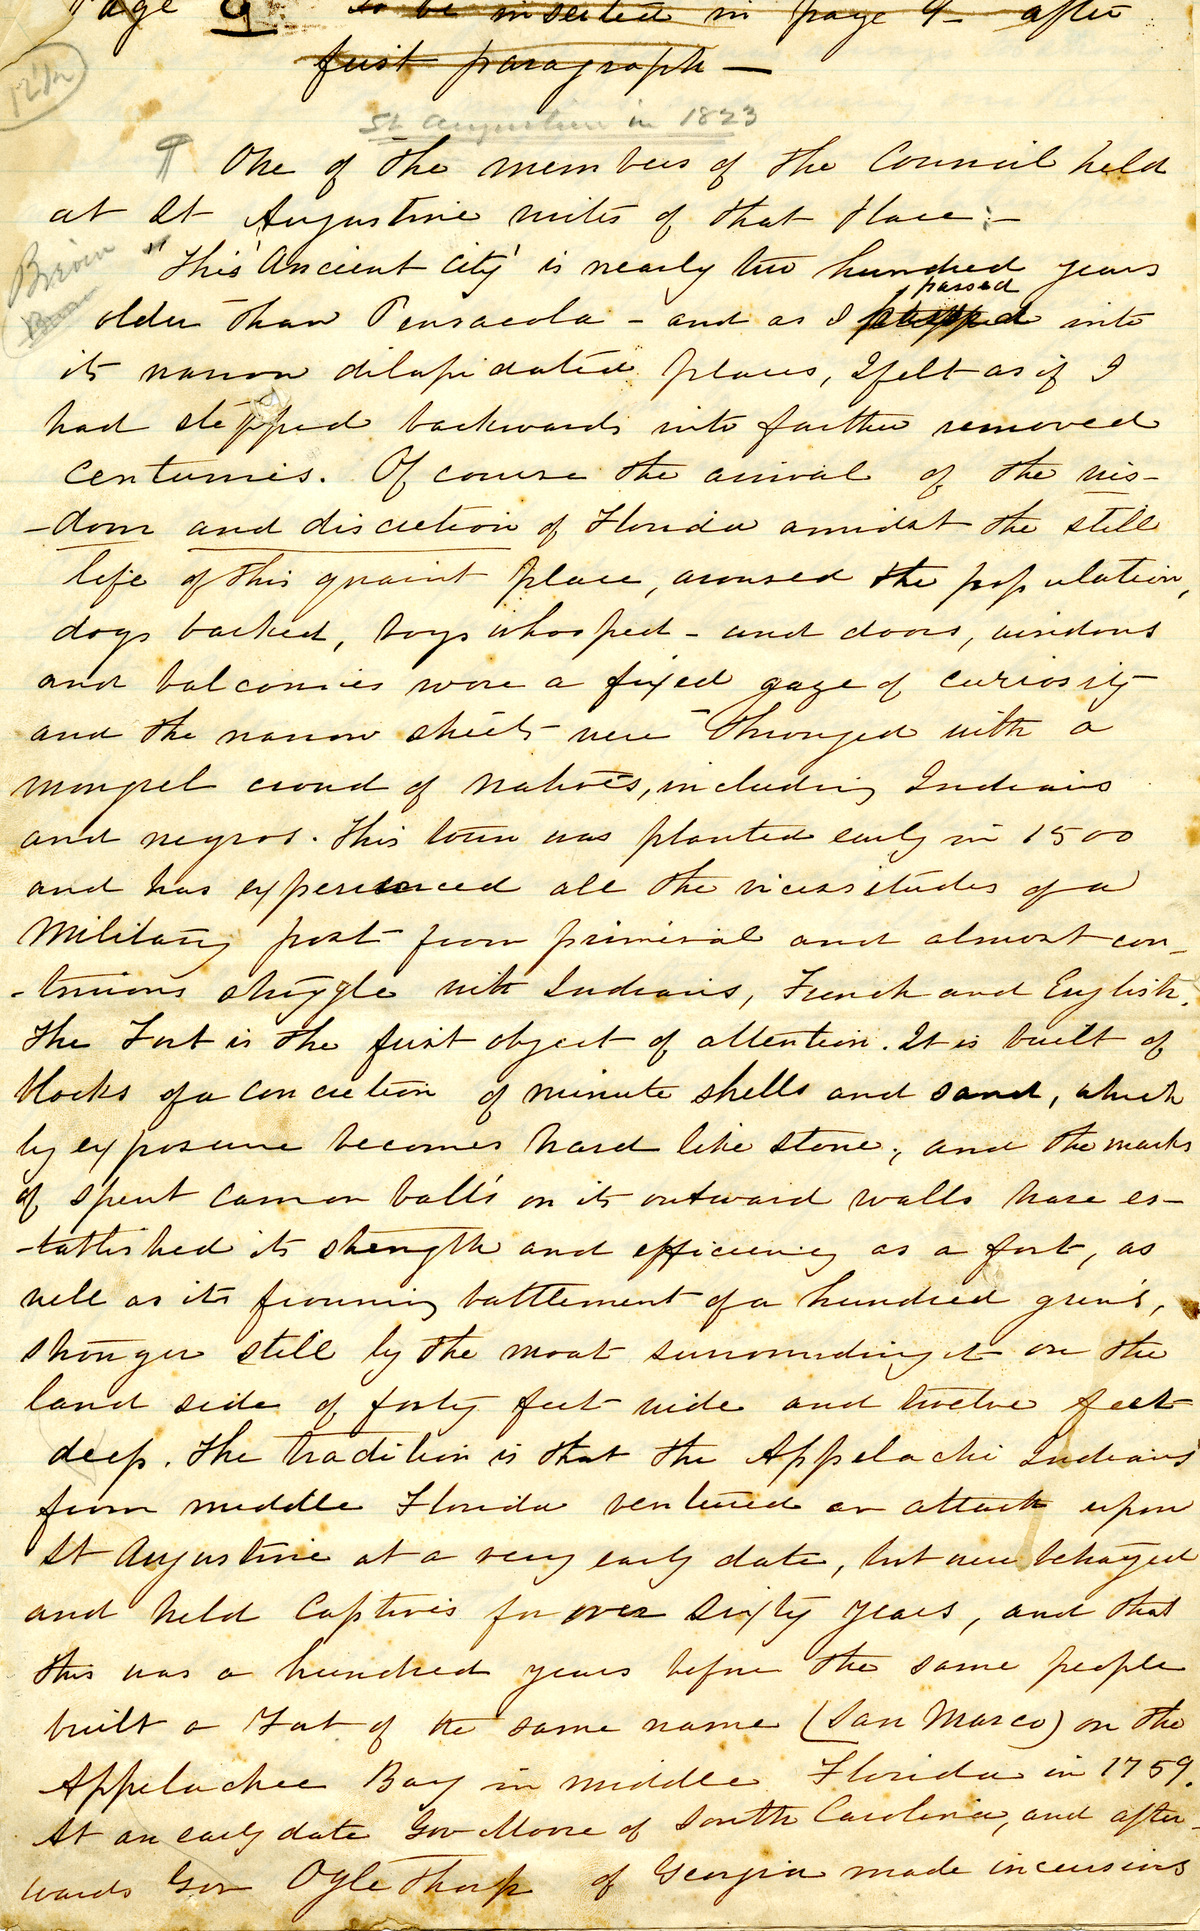 Page 9 to be inserted in page 9 - after
first paragraph -
12 1/2
St Augustine in 1823
¶ One of the members of the Council held
at St Augustine writes of that Place: -
Brown
"This 'Ancient City' is nearly two hundred years
older than Pensacola - and as I passed into
its narrow dilapidated places, I felt as if I
had stepped backwards into farther removed
centuries. Of course the arrival of the wis-
-dom and discretion of Florida amidst the still
life of this quaint place, aroused the population,
dogs barked, boys whooped - and doors, windows
and balconies wore a fixed gaze of curiosity
and the narrow streets were thronged with a
mongrel croud of natives, including Indians
and negros. This town was planted early in 1500
and has experienced all the vicessitudes of a
Military post from primival and almost con-
-tinuous struggle with Indians, French and English.
The Fort is the first object of attention. It is built of
blocks of a concretion of minute shells and sand, which
by exposure becomes hard like stone; and the marks
of spent cannon balls on its outward walls have es-
-tablished its strength and efficiency as a fort, as
well as its frowning battlement of a hundred guns,
stronger still by the moat surrounding it on the
land side of forty feet wide and twelve feet
deep. The tradition is that the Appelachi Indians
from middle Florida ventured an attack upon
St Augustine at a very early date, but were betrayed
and held Captives for over sixty years, and that
this was a hundred years before the same people
built a Fort of the same name (San Marco) on the
Appelachee Bay in middle Florida in 1759.
At an early date Gov Moore of South Carolina, and after-
wards Gov OgleThorp of Georgia made incursions